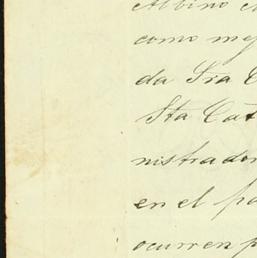 Albino
como mej
da Sra C
Sta Cat
nistrador
en el pa
ocurren p